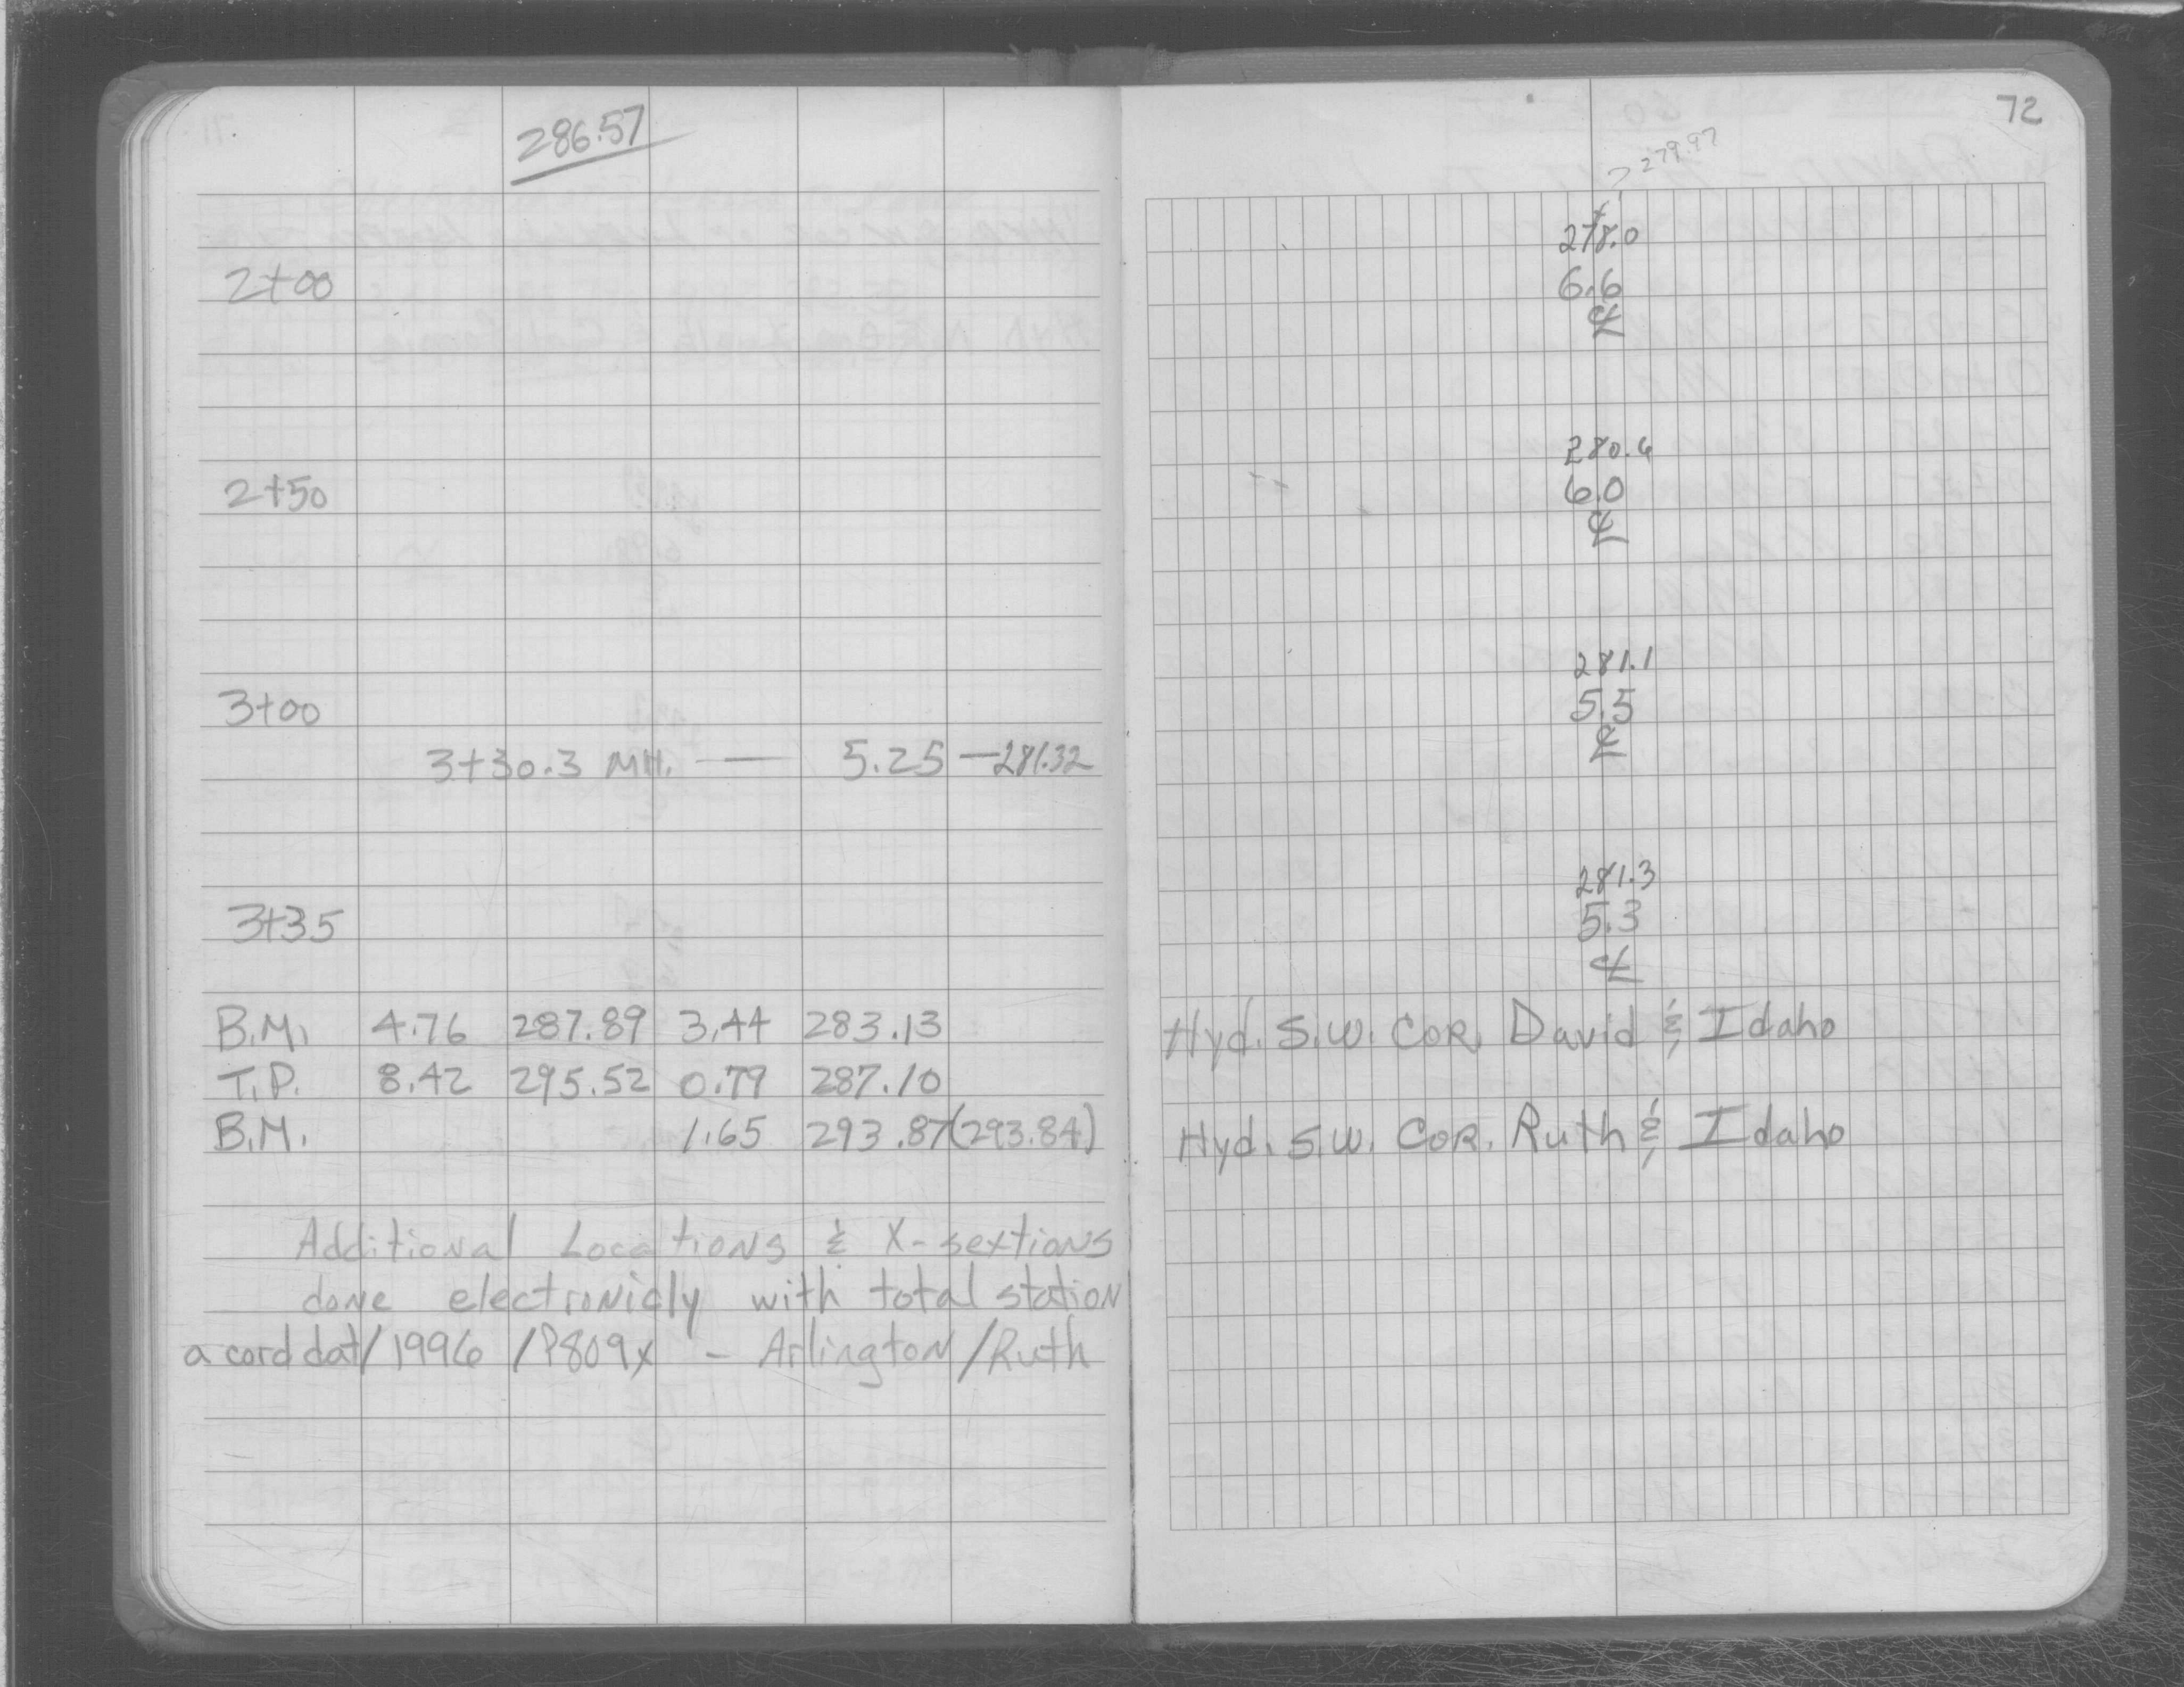 286.57
2+00
2+50
3+00
3+30.3 MH. — 5.25 — 281.32
3+35
B.M. 4.76 287.89 3.44 283.13
T.P. 8.42 295.52 0.79 287.10
B.M. 1.65 293.87 (293.84)
Additional Locations & X-sextions
done electronicly with total station
a cord dat/1996/P809x - Arlington/Ruth
72
? 279.97
278.0
6.6
℄
280.6
6.0
℄
281.1
5.5
℄
281.3
5.3
℄
Hyd. S.W. COR. David & Idaho
Hyd. S.W. COR. Ruth & Idaho